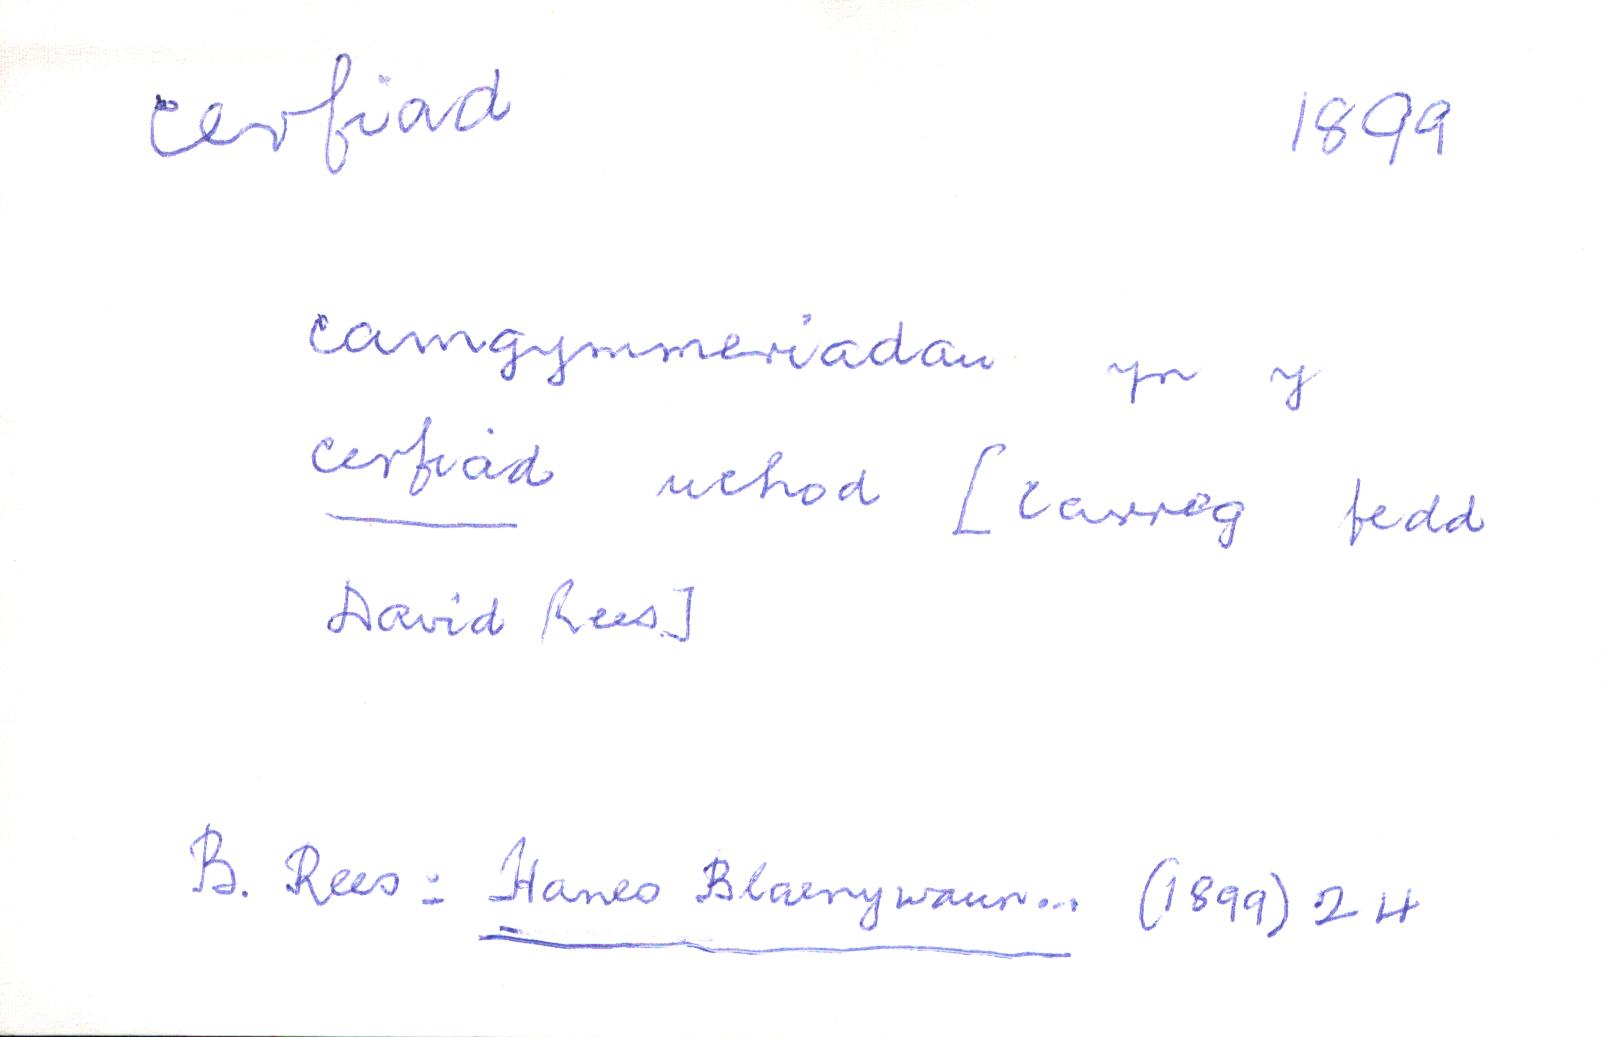 cerfiad 1899
camgymmeriadau yn y
cerfiad uchod [carreg fedd
David Rees]
B. Rees : Hanes Blaenywaun... (1899) 24